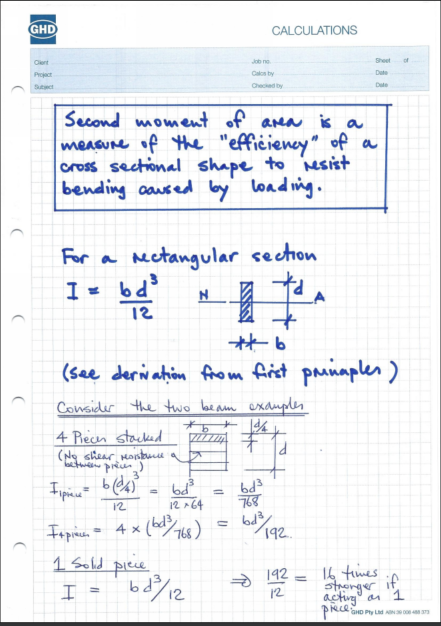 GHD
CALCULATIONS
Client
Job no.
Sheet of
Project
Calcs by
Date
Subject
Checked by
Date
Second moment of area is a
measure of the "efficiency" of a
cross sectional shape to resist
bending caused by loading.
For a rectangular section
I = bd³/12
N A
d
b
(see derivation from first principles)
Consider the two beam examples
4 Pieces stacked
(No shear resistance
between pieces)
b
d/4
d
I1piece = b(d/4)³/12 = bd³/12×64 = bd³/768
I4pieces = 4 × (bd³/768) = bd³/192.
1 Solid piece
I = bd³/12
⇒ 192/12 = 16 times
stronger if
acting as 1
piece.
GHD Pty Ltd ABN 39 008 488 373